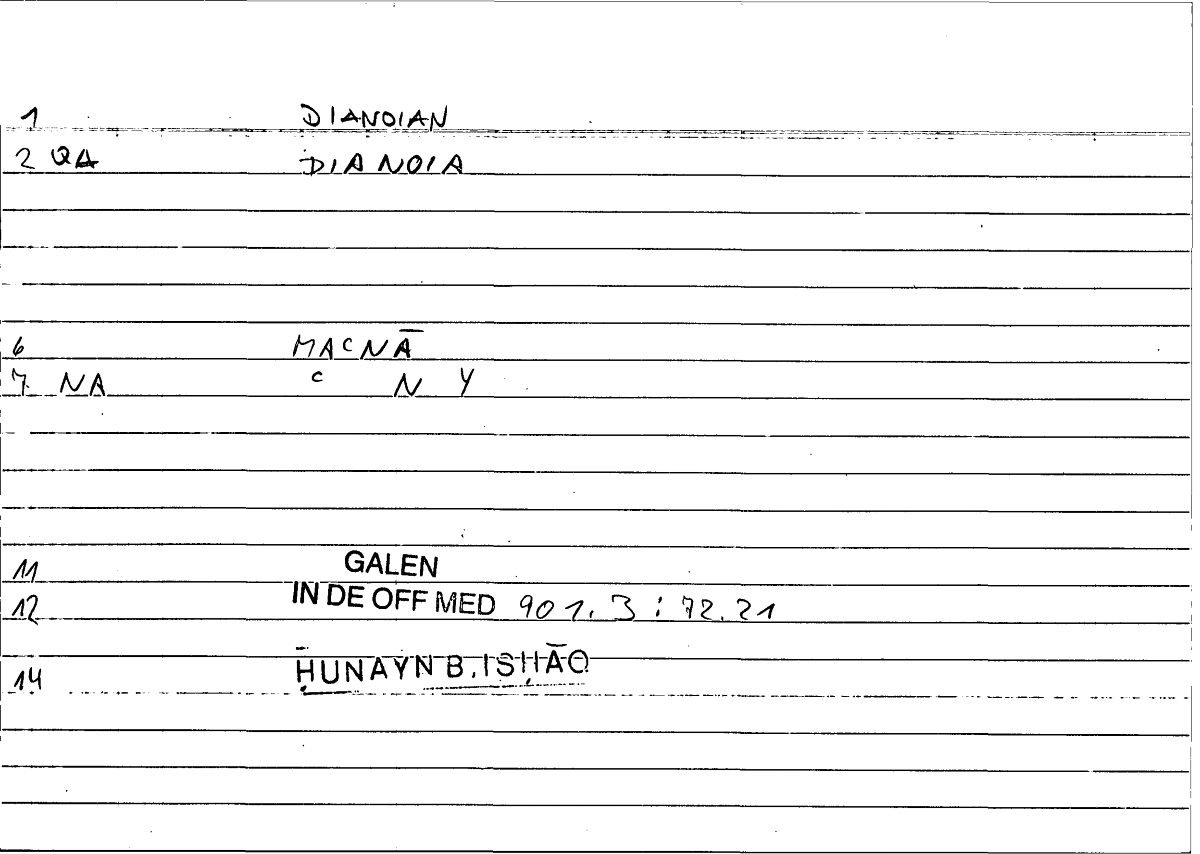 1 DIANOIAN
2 QA DIANOIA
6 MACNĀ
7 NA C N Y
11 GALEN
12 IN DE OFF MED 901.3 : 72.21
14 ḤUNAYN B. ISḤĀQ